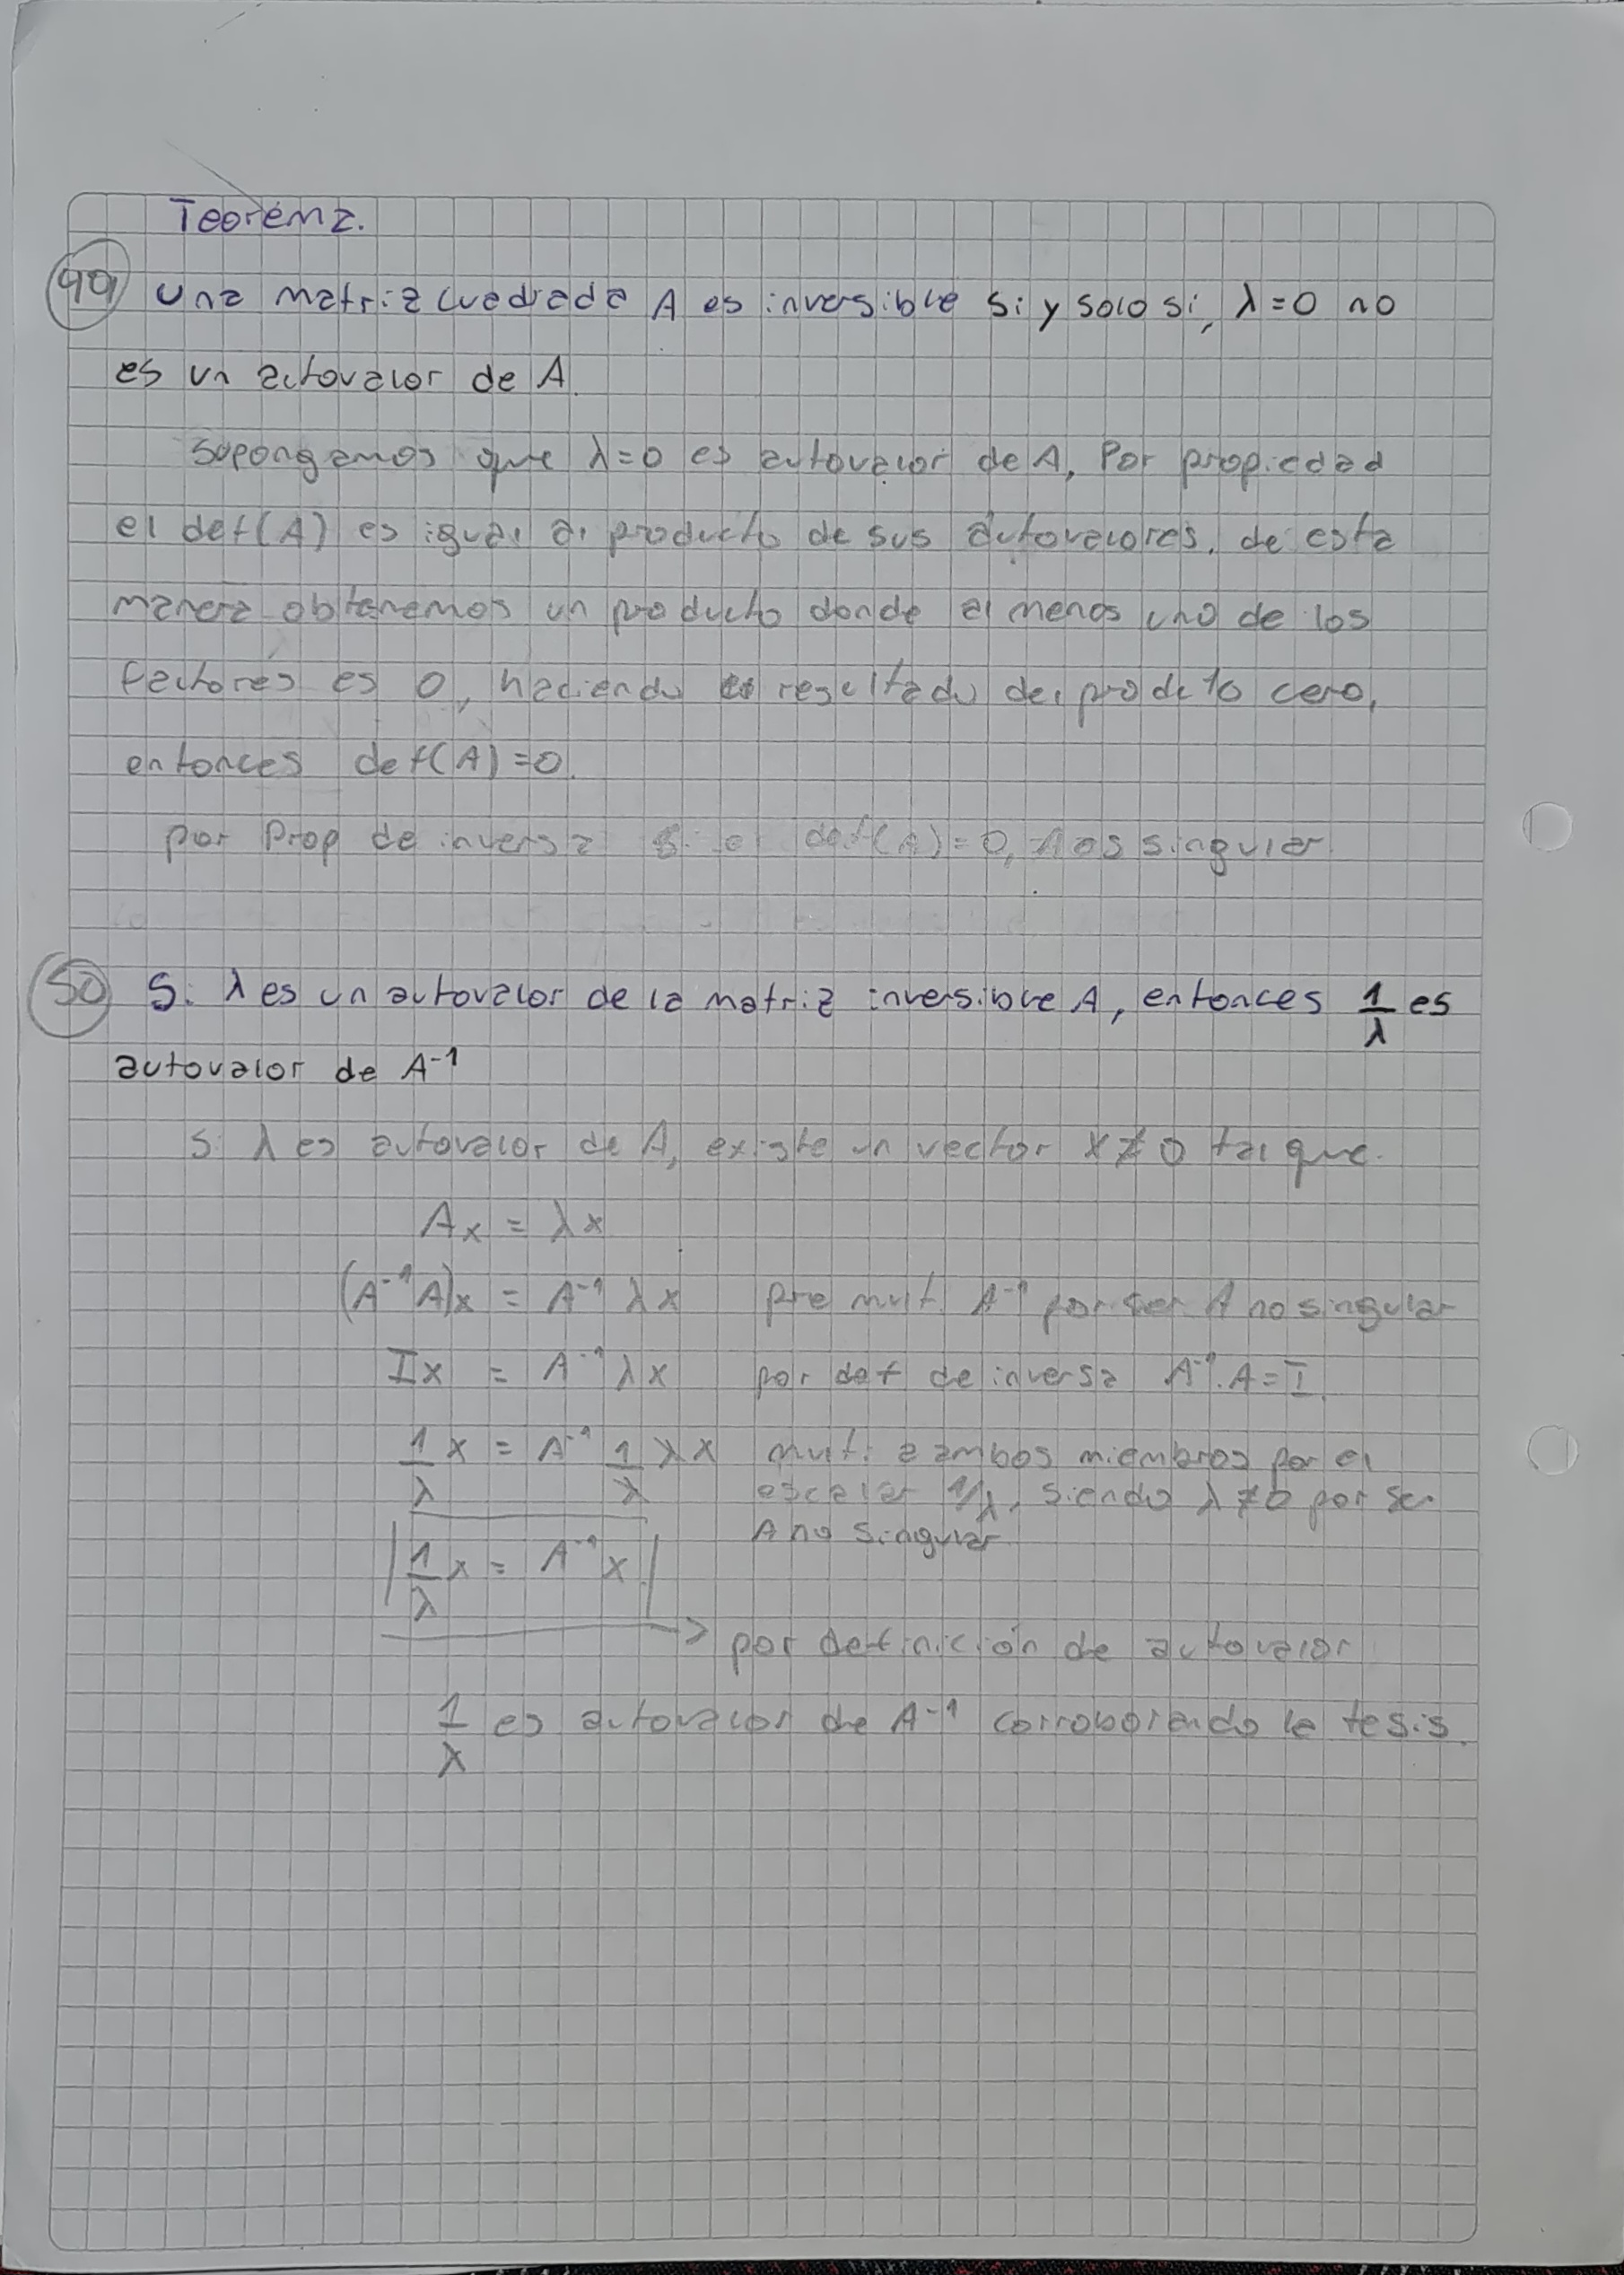 Teorema.
49 Una matriz cuadrada A es inversible si y solo si, λ=0 no
es un autovalor de A.
Supongamos que λ=0 es autovalor de A, Por propiedad
el det(A) es igual al producto de sus autovalores, de esta
manera obtenemos un producto donde al menos uno de los
factores es 0, haciendo el resultado del prodcto cero,
entonces det(A)=0.
por Prop de inversa si el det(A)=0, A es singular.
50 Si λ es un autovalor de la matriz inversible A, entonces 1/λ es
autovalor de A⁻¹
Si λ es autovalor de A, existe un vector x≠0 tal que.
Ax = λx
(A⁻¹A)x = A⁻¹ λx pre mult. A⁻¹ por ser A no singular
Ix = A⁻¹ λx por def de inversa A⁻¹.A=I.
1/λ x = A⁻¹ 1/λ λx mult: a ambos miembros por el
escalar 1/λ, siendo λ≠0 por ser
A no singular
1/λ x = A⁻¹x
por definición de autovalor
1/λ es autovalor de A⁻¹ corroborando la tesis.